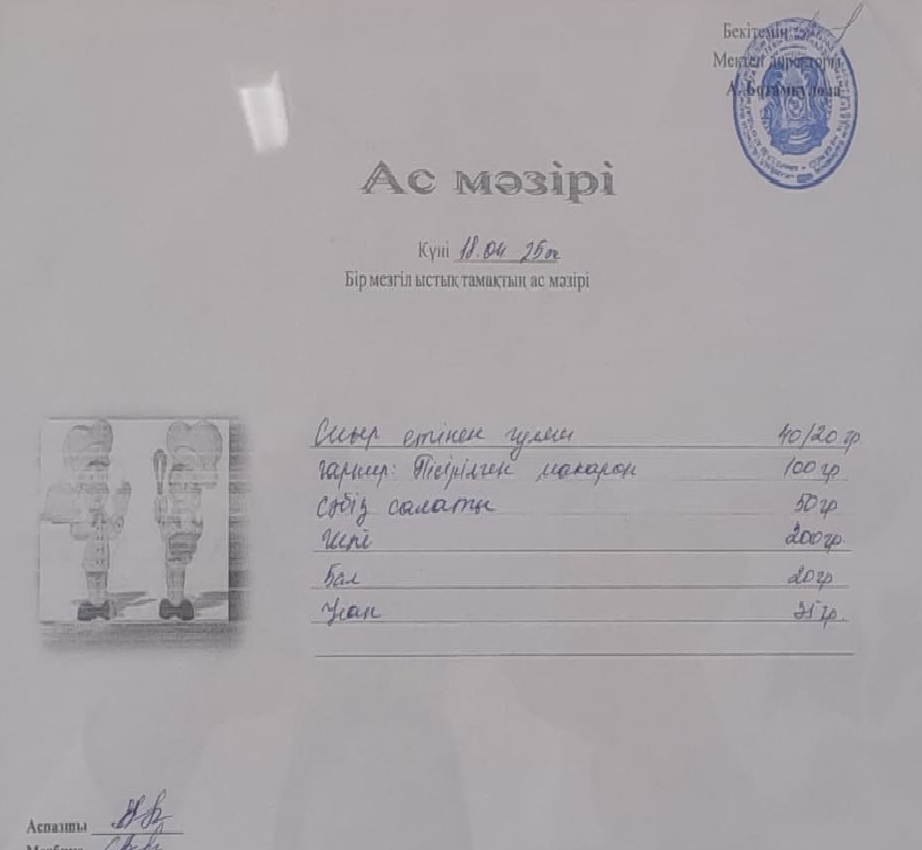 Бекітемін
Мектеп директоры
А.
Ас мәзірі
Күні 18.04 25ж
Бір мезгіл ыстық тамақтың ас мәзірі
Сиыр етінен гуляш 40/20 гр
гарнир: Пісірілген макарон 100 гр
Сәбіз салаты 50 гр
200 гр.
Бал 20 гр
Нан 25 гр.
Аспазшы